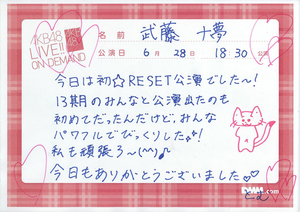 AKB48
LIVE!!
ON DEMAND
名前 武藤 十夢
公演日 6月28日 18:30公演
今日は初☆RESET公演でした〜!
13期のみんなと公演出たのも
初めてだったんだけど、みんな
パワフルでびっくりした!!
私も頑張ろ〜(^^)♪
今日もありがとうございました♡♡
とむ
DMM.com